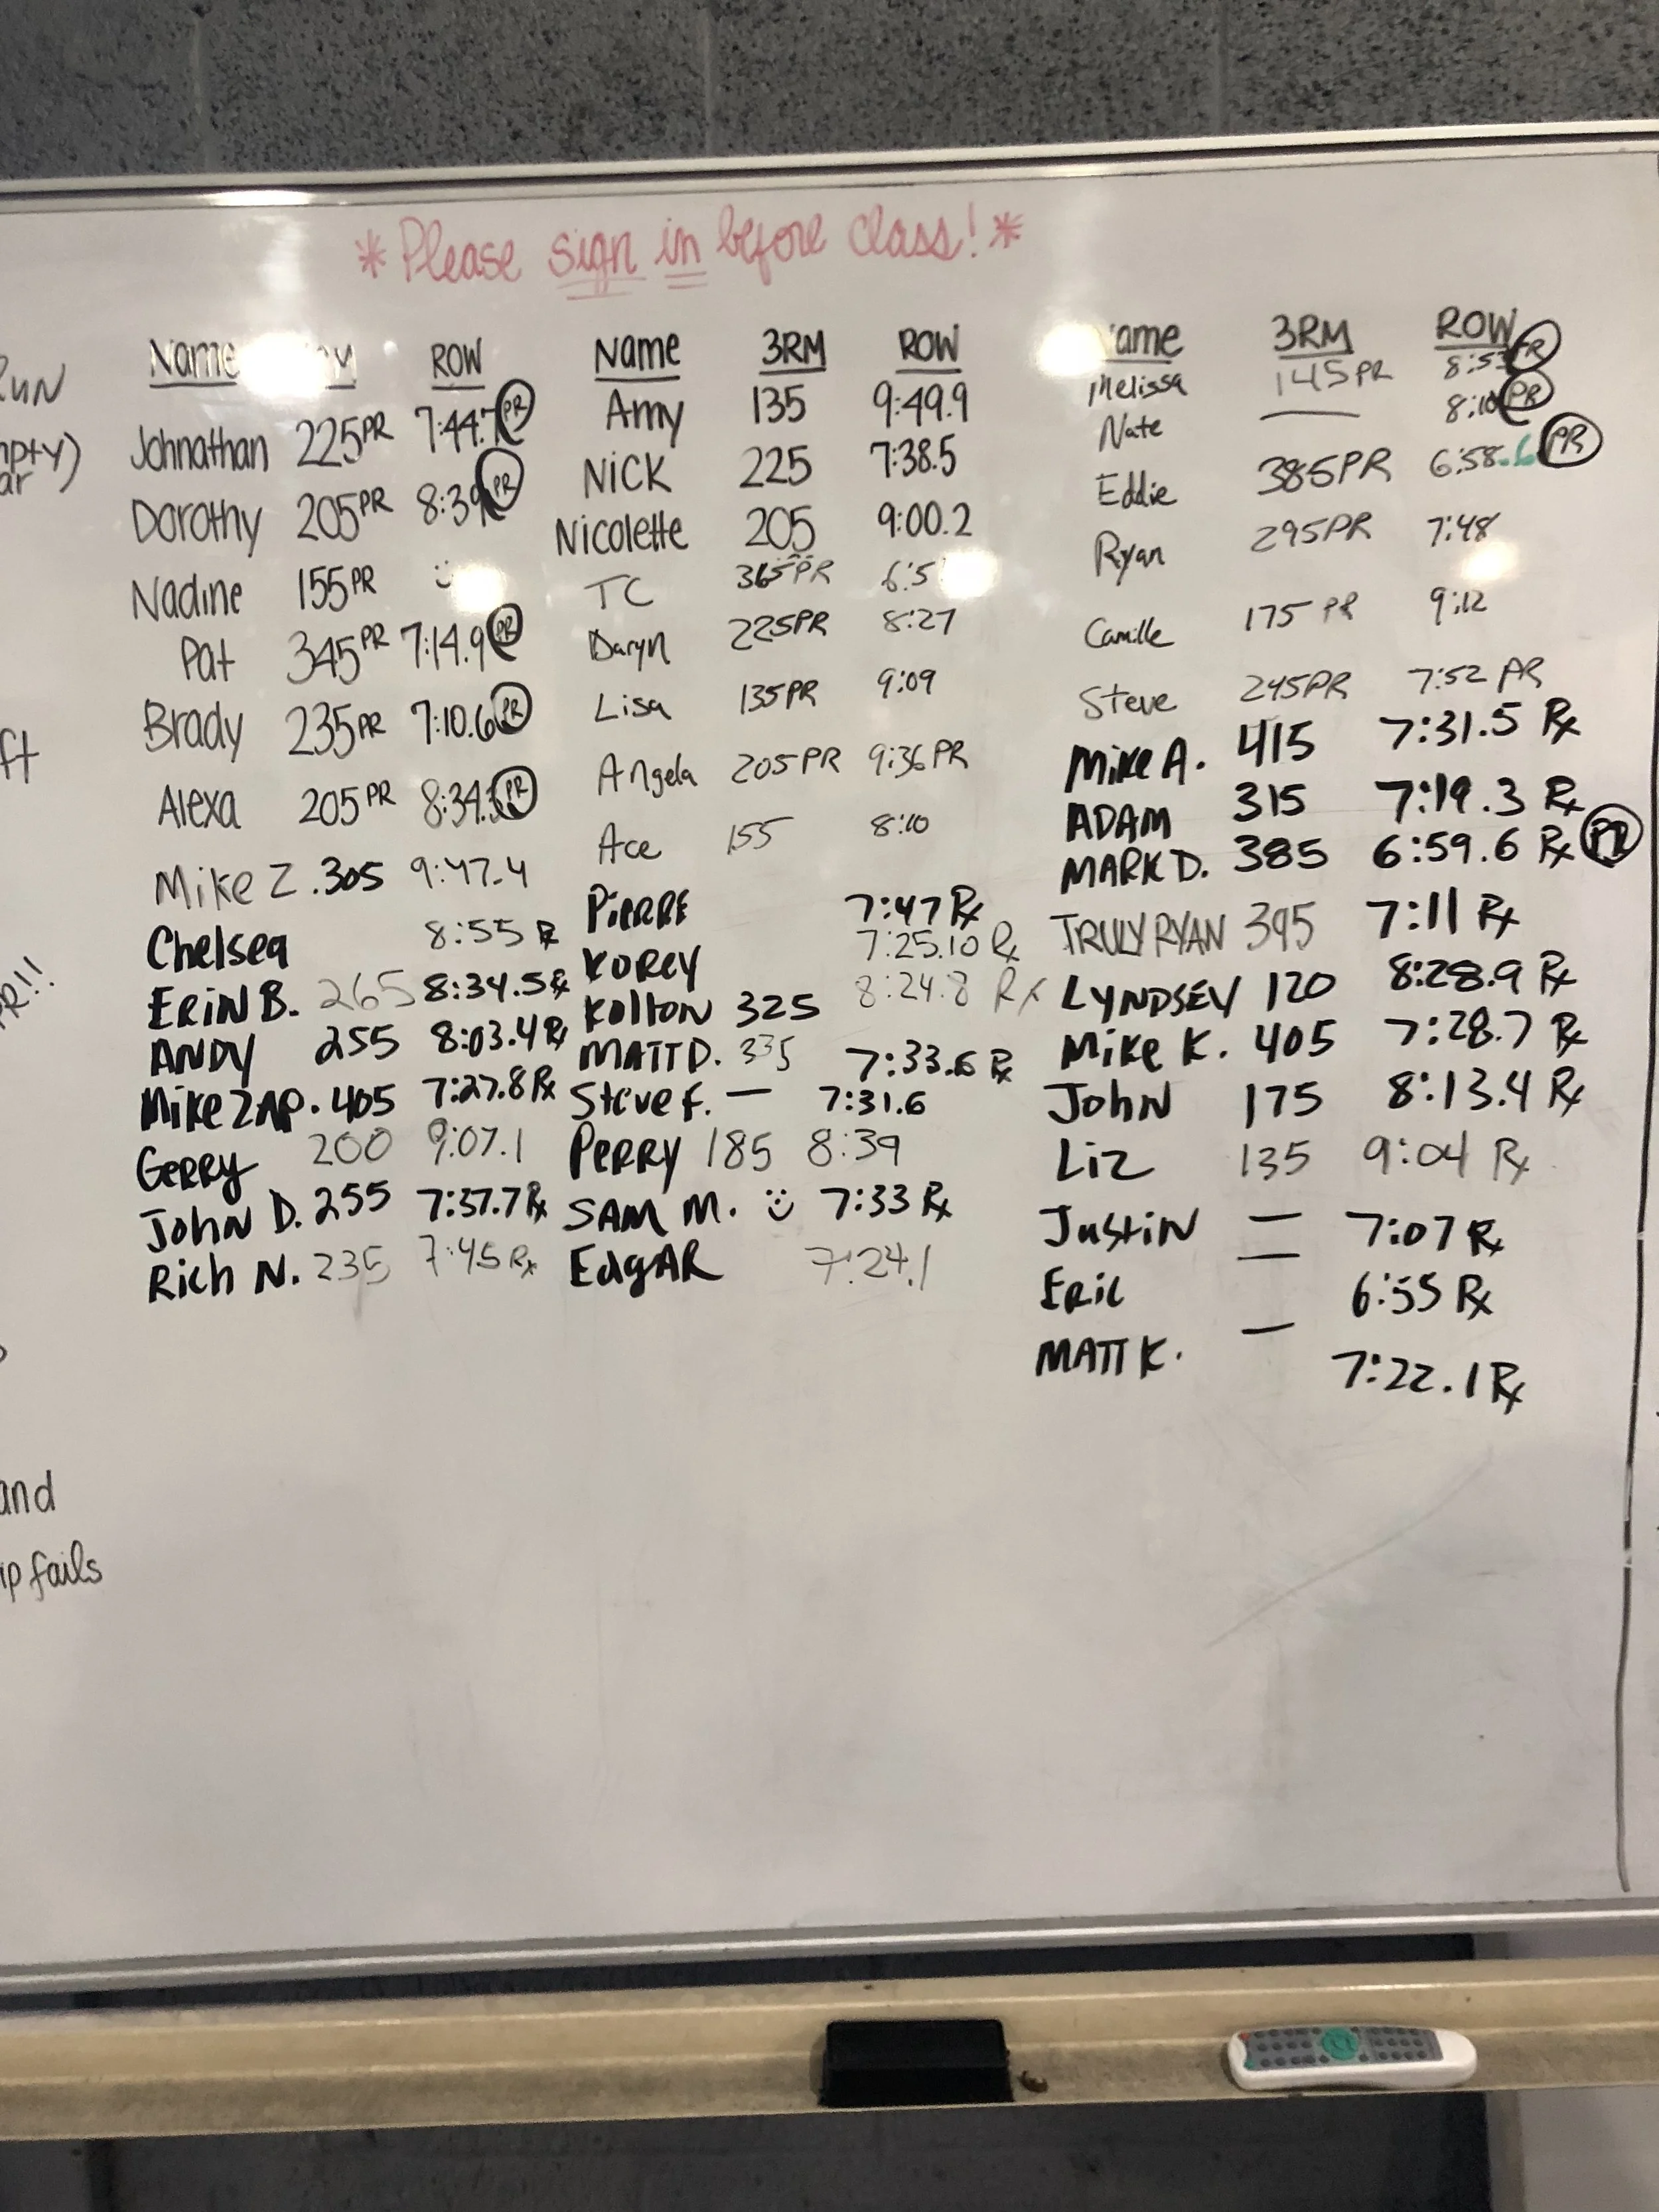 *Please sign in before class!*
RUN
ft
and
fails
Name ROW
Johnathan 225PR 7:44.7 PR
Dorothy 205PR 8:39 PR
Nadine 155PR
Pat 345PR 7:14.9 PR
Brady 235PR 7:10.6 PR
Alexa 205PR 8:34. PR
Mike Z. 305 9:47.4
Chelsea 8:55 Rx
ERIN B. 265 8:34.5 Rx
ANDY 255 8:03.4 Rx
Mike ZAP. 405 7:27.8 Rx
GERRY 200 9:07.1
John D. 255 7:37.7 Rx
Rich N. 235 7:45 Rx
Name 3RM ROW
Amy 135 9:49.9
NICK 225 7:38.5
Nicolette 205 9:00.2
TC 365PR 6:5
Daryn 225PR 8:27
Lisa 135PR 9:09
Angela 205PR 9:36 PR
Ace 155 8:10
PiERRE 7:47 Rx
KOREY 7:25.10 Rx
Kolton 325 8:24.8 Rx
MATT D. 335 7:33.6 Rx
Steve F. — 7:31.6
PERRY 185 8:39
SAM M. 7:33 Rx
EdgAR 7:24.1
Name 3RM ROW
Melissa 145PR 8:53 PR
Nate — 8:10 PR
Eddie 385PR 6:58.6 PR
Ryan 295PR 7:48
Camille 175 PR 9:12
Steve 245PR 7:52 PR
Mike A. 415 7:31.5 Rx
ADAM 315 7:19.3 Rx
MARK D. 385 6:59.6 Rx PR
TRULY RYAN 395 7:11 Rx
LYNDSEY 120 8:28.9 Rx
Mike K. 405 7:28.7 Rx
John 175 8:13.4 Rx
Liz 135 9:04 Rx
Justin — 7:07 Rx
Eric — 6:55 Rx
MATT K. — 7:22.1 Rx